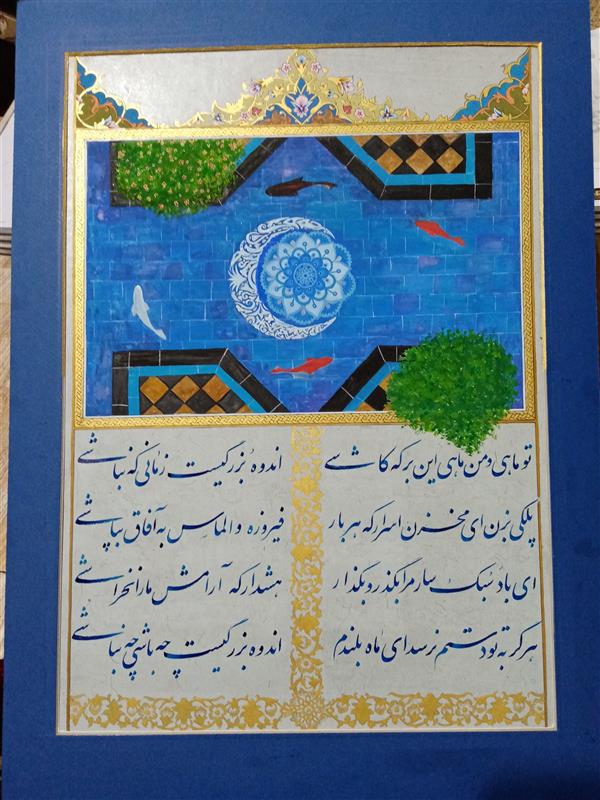 تو ماهی و من ماهی این برکه کاشی اندوه بزرگیست زمانی که نباشی
پلکی بزن ای مخزن اسرار که هر بار فیروزه و الماس به آفاق بپاشی
ای باد سُبک سار مرا بگذر و بگذار هشدار که آرامش ما را نخراشی
هرگز به تو دستم نرسد ای ماه بلندم اندوه بزرگیست چه باشی چه نباشی